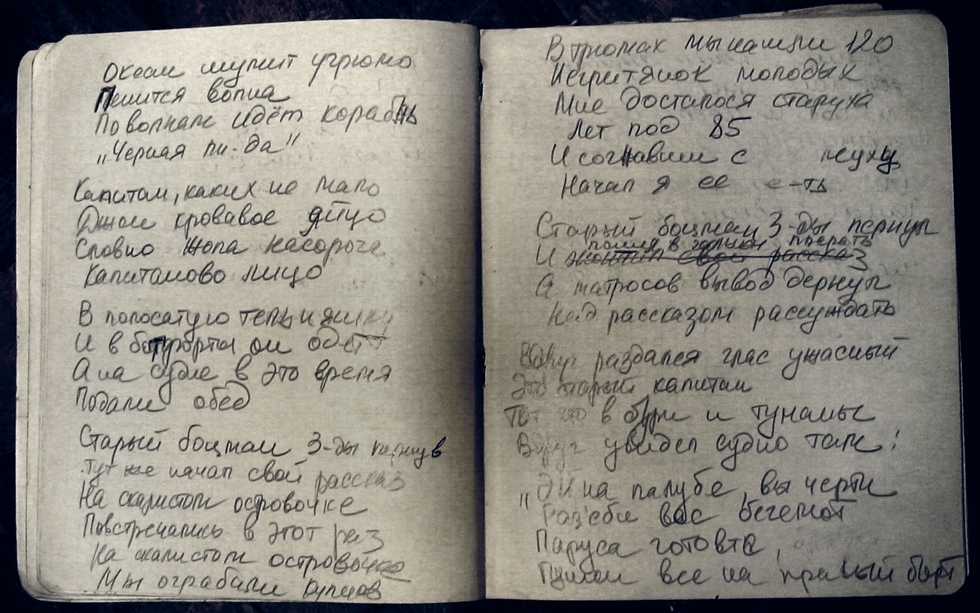 Океан шумит угрюмо
Пенится волна
По волнам идёт корабль
„Черная пи-да"
Капитан, каких не мало
Джон кровавое яйцо
Словно жопа носорога
Капитаново лицо
В полосатую тельняшку
И в ботфорты он одет
А на судне в это время
Подали обед
Старый боцман 3-ды пёрнув
Тут же начал свой рассказ
На скалистом островочке
Повстречались в этот раз
На скалистом островочке
Мы ограбили купцов
В трюмах мы нашли 120
Негритянок молодых
Мне досталося старуха
Лет под 85
И согнавши с
Начал я ее е-ть
Старый боцман 3-ды пернул
пошел в гальюн посрать
И свой рассказ
А матросов вывод дернул
Над рассказом рассуждать
Вдруг раздался глас ужасный
Это старый капитан
Тот что в бури и тунамы
Вдруг увидел судно там!
„Эй на палубе, вы черти
Раз'еби вас бегемот
Паруса готовте,
все на правый борт